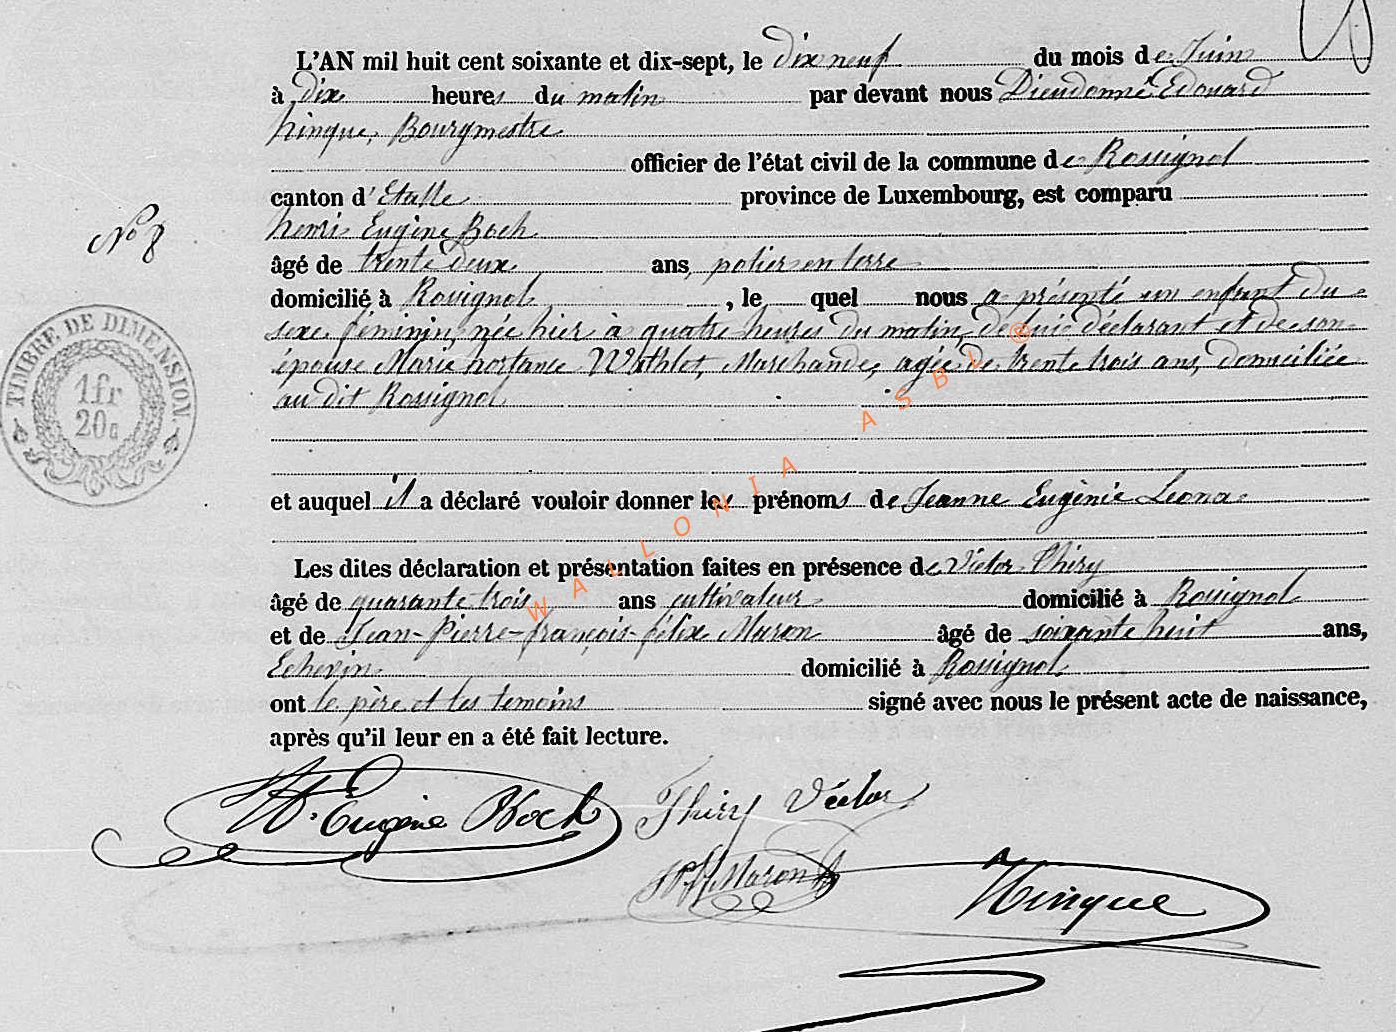 L'AN mil huit cent soixante et dix-sept, le dix neuf du mois de Juin
à dix heures du matin par devant nous Dieudonné Edouard
hinque, Bourgmestre
officier de l'état civil de la commune de Rossignol
canton d'Etalle province de Luxembourg, est comparu
henri Eugène Boch
âgé de trente deux ans, potier en terre
domicilié à Rossignol, le quel nous a présenté un enfant du
sexe féminin, née hier à quatre heures du matin, de lui déclarant et de son
épouse Marie hortance Wathlet, Marchande, agée de trente trois ans, domiciliée
au dit Rossignol
No 8
TIMBRE DE DIMENSION.
1fr
20c
et auquel il a déclaré vouloir donner les prénoms de Jeanne Eugènie Leona
Les dites déclaration et présentation faites en présence de Victor Thiry
âgé de quarante trois ans cultivateur domicilié à Rossignol
et de Jean-Pierre-françois-félix Maron âgé de soixante huit ans,
Echevin domicilié à Rossignol
ont le père et les temoins signé avec nous le présent acte de naissance,
après qu'il leur en a été fait lecture.
H. Eugène Boch Thiry Victor
Maron Hinque
WALLONIA ASBL ®